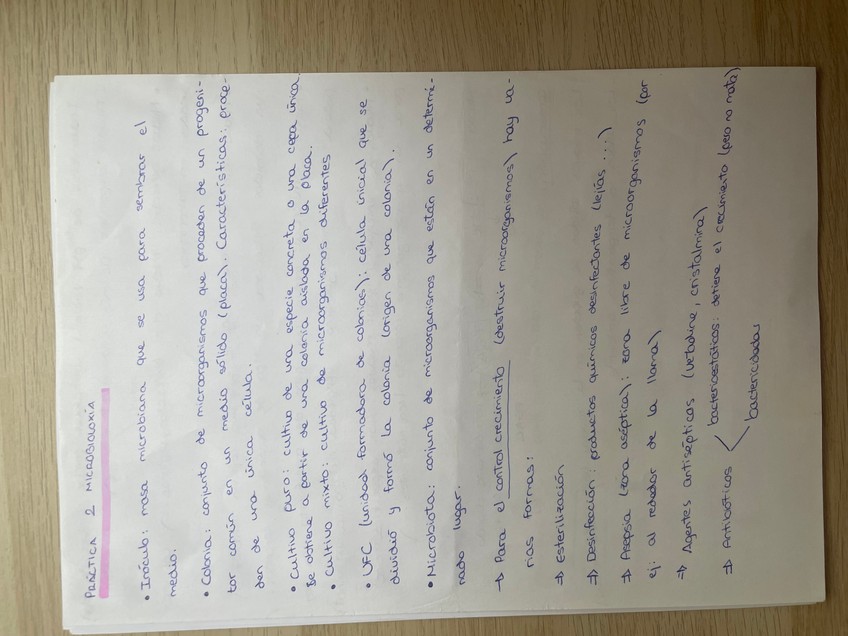 PRÁCTICA 2 MICROBIOLOXÍA
• Inóculo: masa microbiana que se usa para sembrar el
medio.
• Colonia: conjunto de microorganismos que proceden de un progeni-
tor común en un medio sólido (placa). Características: proce-
den de una única célula.
• Cultivo puro: cultivo de una especie concreta o una cepa única.
Se obtiene a partir de una colonia aislada en la placa.
• Cultivo mixto: cultivo de microorganismos diferentes
• UFC (unidad formadora de colonias): célula inicial que se
dividió y formó la colonia (origen de una colonia).
• Microbiota: conjunto de microorganismos que están en un determi-
nado lugar.
→ Para el control crecimiento (destruir microorganismos) hay va-
rias formas:
⇒ Esterilización
⇒ Desinfección: productos químicos desinfectantes (lejías ...)
⇒ Asepsia (zona aséptica): zona libre de microorganismos (por
ej: al rededor de la llama)
⇒ Agentes antisépticos (vetadine, cristalmina)
⇒ Antibióticos
bacteriostáticos: detiene el crecimiento (pero no mata)
bactericidadas